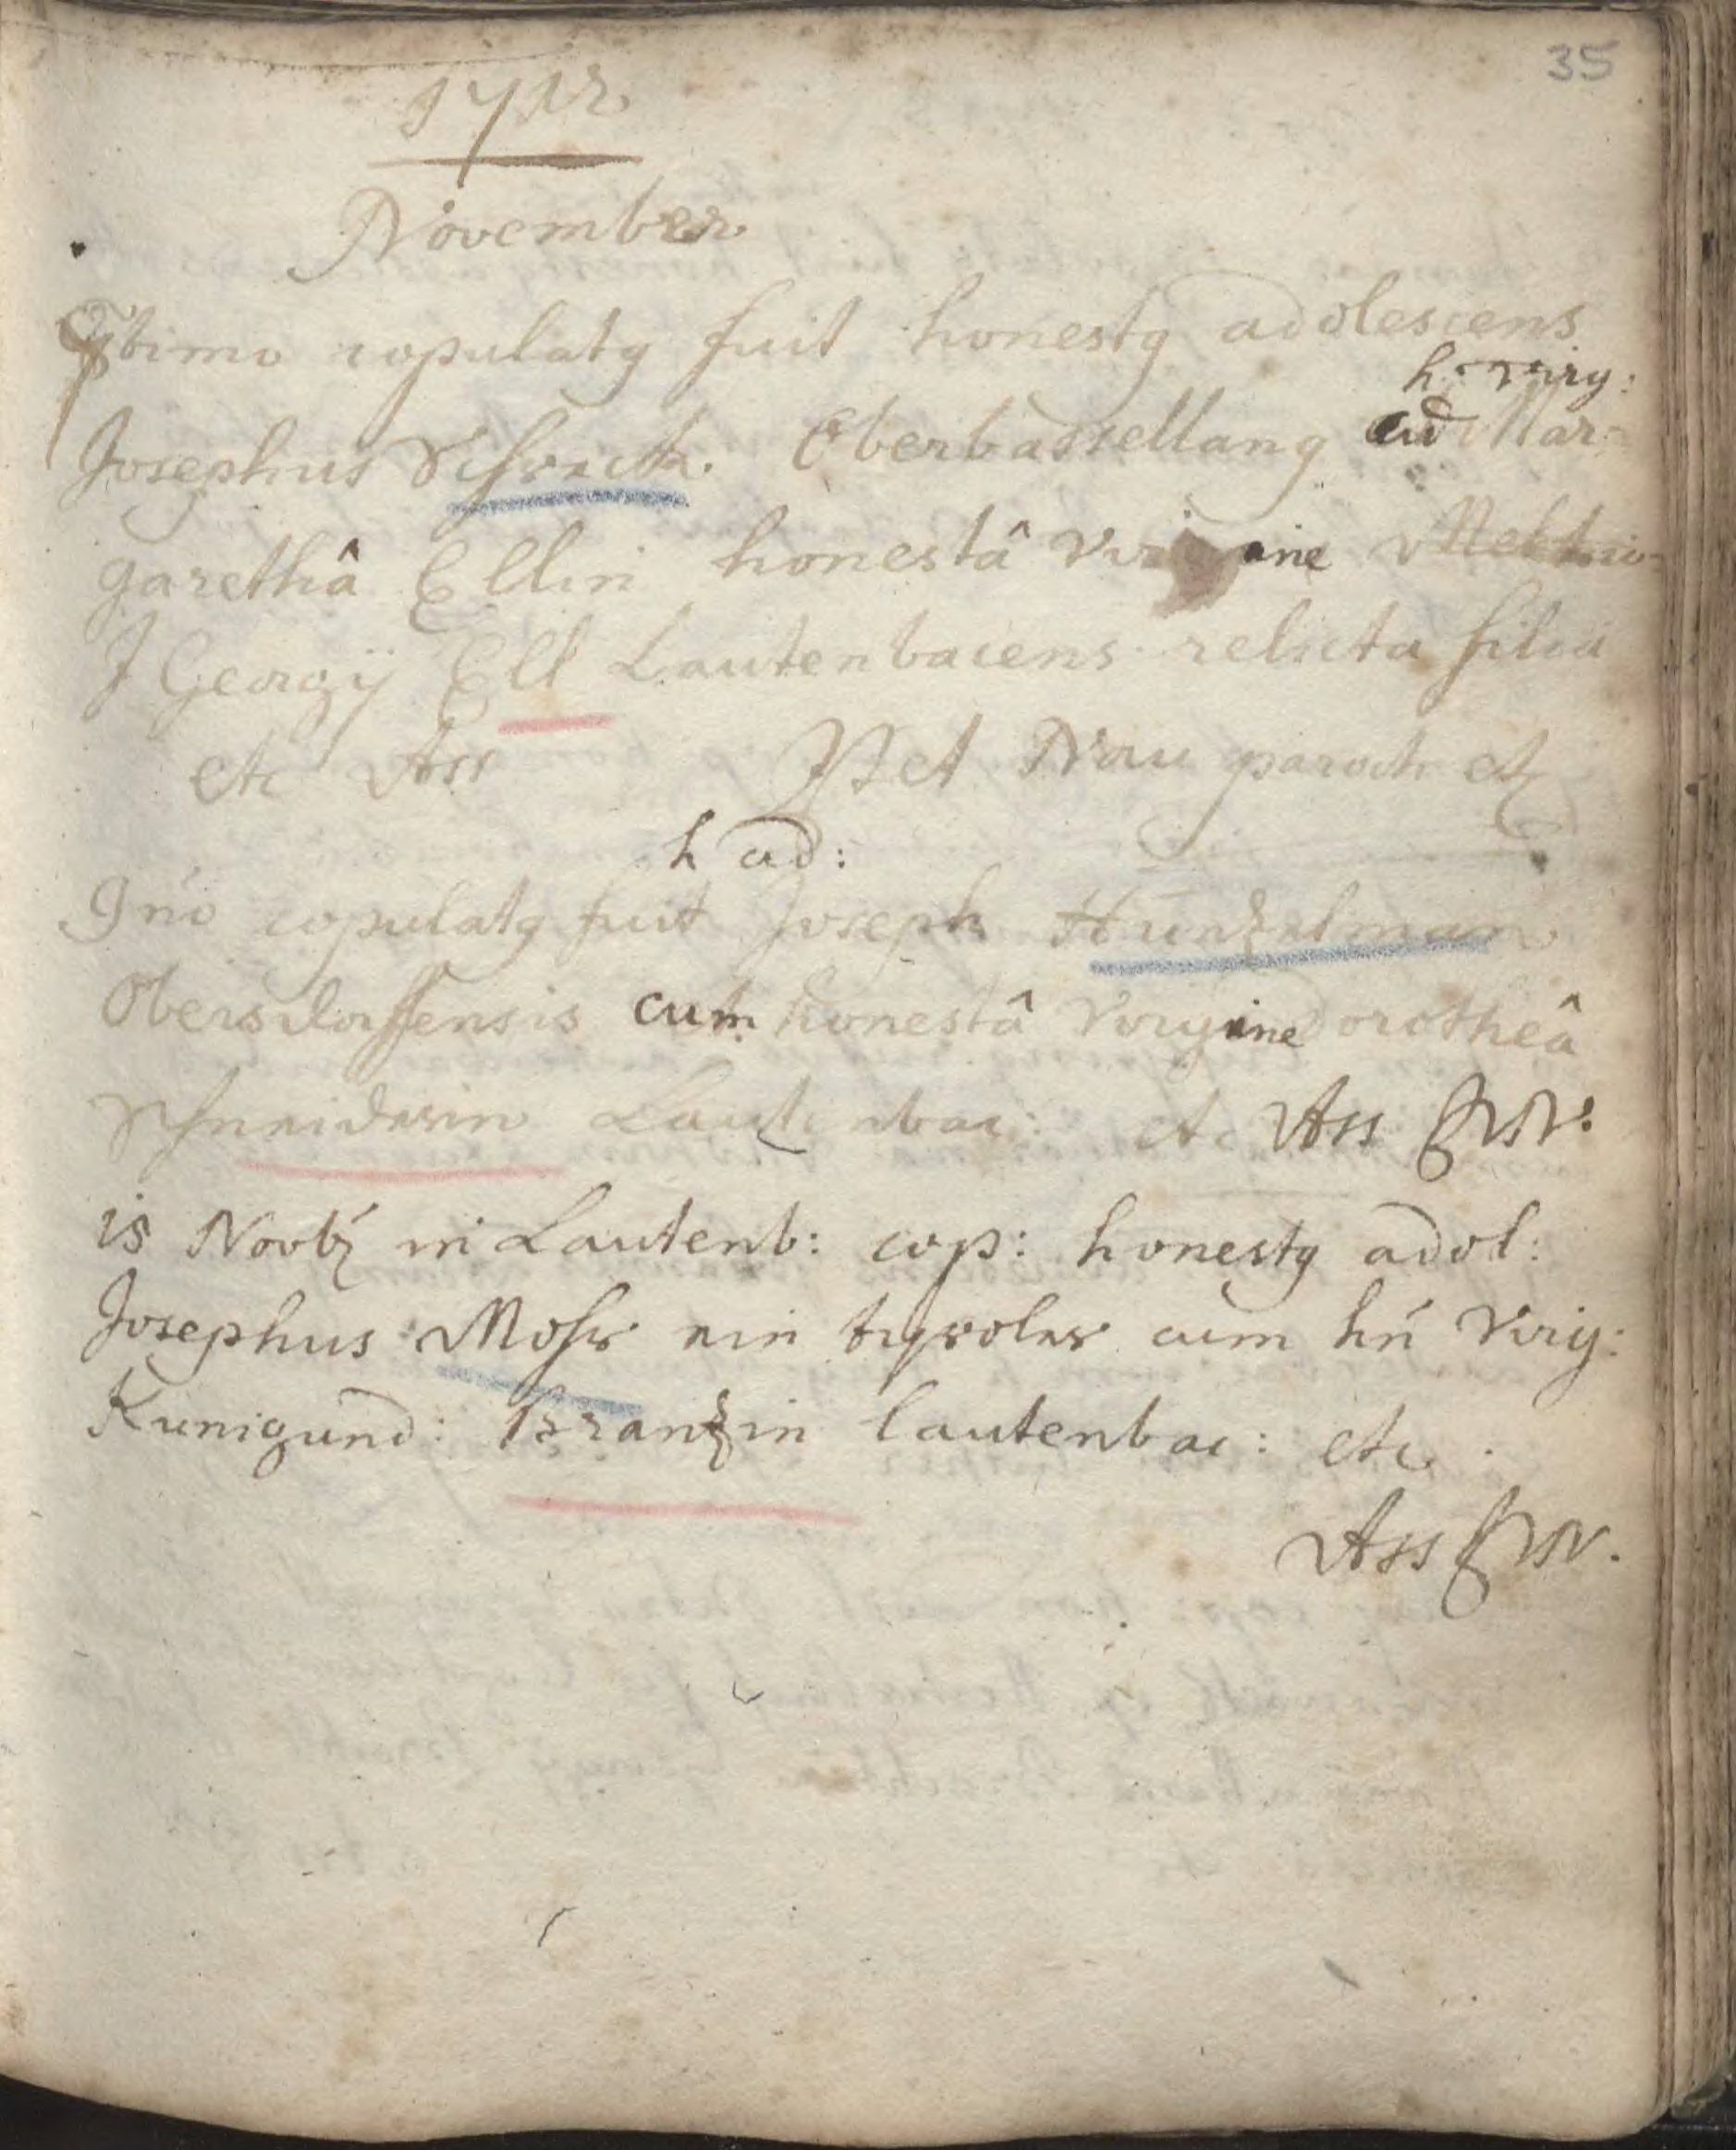 35
1712
November
7timo copulatg fuit honestg adolescens
h. virg:
Josephus Schreck. Oberhasellang ad Mar=
garethâ Ellin honestâ ine
J Georgÿ Ell Lautenbacens. relicta filia
etc Ass Pet Nau paroch etc
h ad:
9no copulatg fuit Joseph Hünzelman
Obersdorffensis cum honestâ virgine Dorotheâ
Schneiderin Lautenbac: etc Ass
15 Novb in Lautenb: cop: honestg adol:
Josephus Mohr ein tyroler cum hn Virg:
Kunigund: Kranzin lautenbac: etc.
Ass